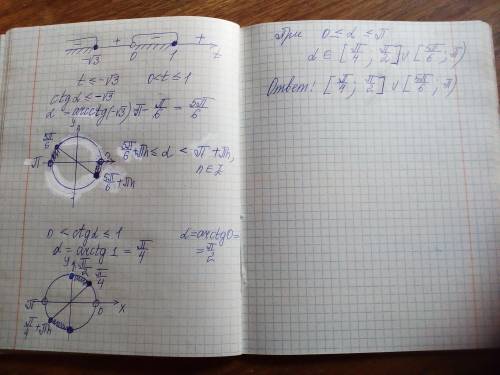 + +
√3 0 1 t
t ≤ -√3 0 < t ≤ 1
ctgα ≤ -√3
α - arcctg(-√3) π - π/6 = 5π/6
y
5π/6
π
5π/6 + πn
5π/6 + πn ≤ α < π + πn,
n ∈ Z
0 < ctgα ≤ 1 α = arcctg 0 =
α = arcctg 1 = π/4 = π/2
y π/2 π/4
π 0 x
π/4 + πn
При 0 ≤ α ≤ π
α ∈ [π/4; π/2] ∪ [5π/6; π)
Ответ: [π/4; π/2] ∪ [5π/6; π)